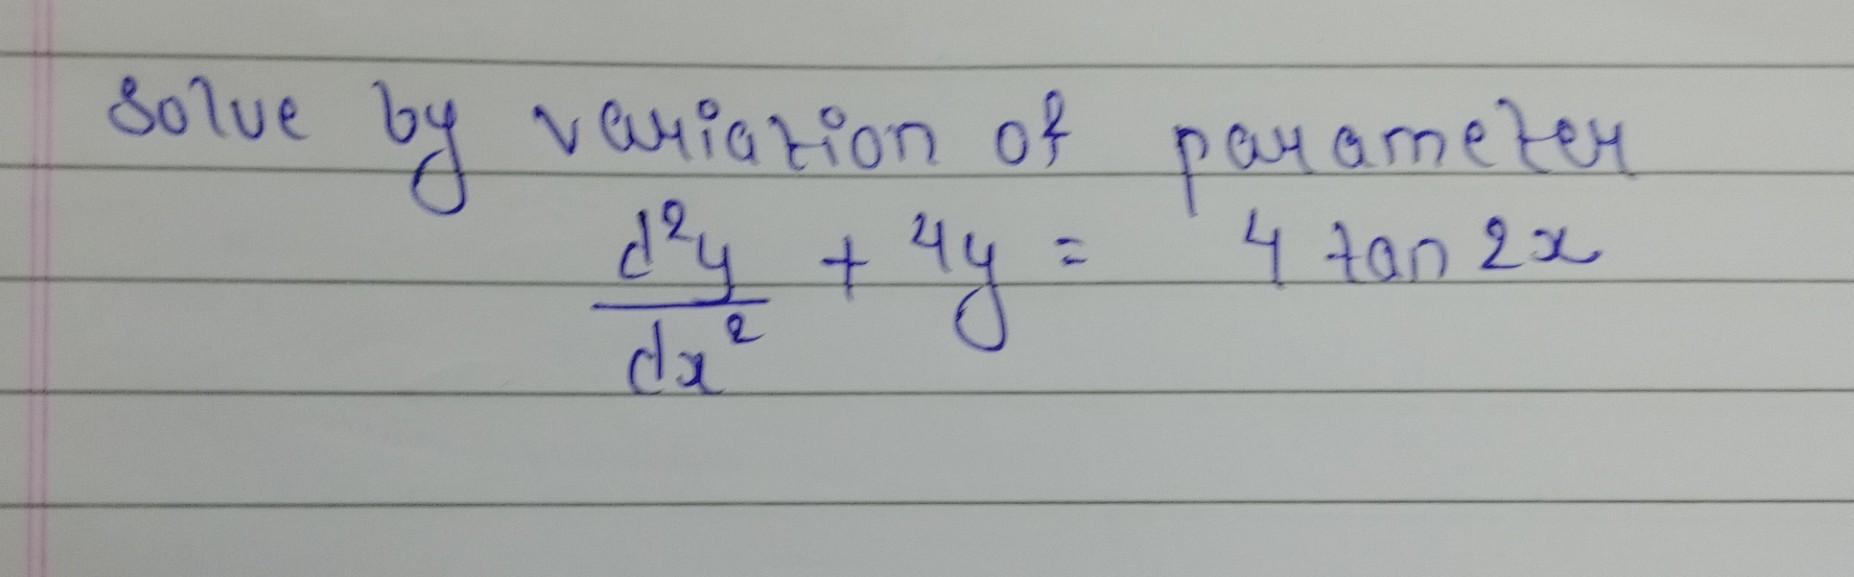 Solve by variation of parameter
d²y/dx² + 4y = 4 tan 2x